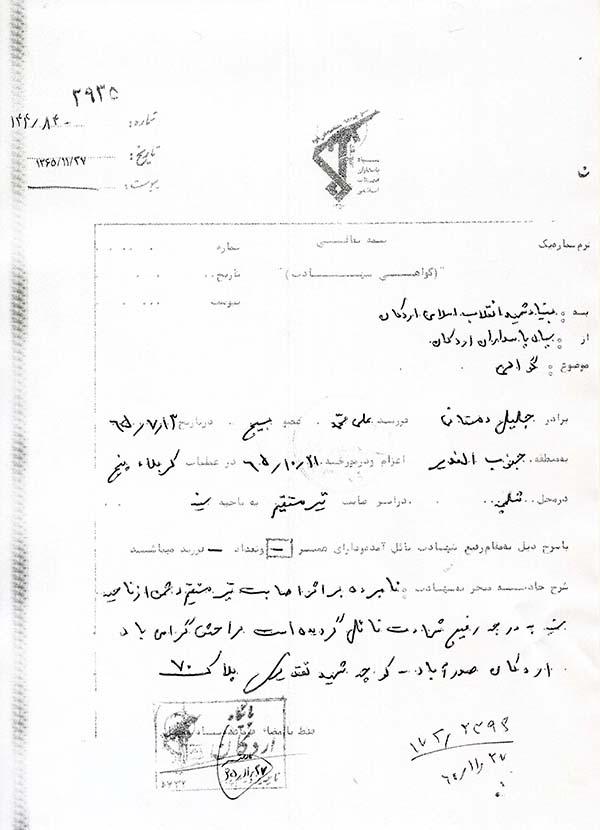 ۲۹۳۵
شماره: ۱۴۴/۸۴
تاریخ: ۱۳۶۵/۱۱/۲۷
پیوست:
سپاه
پاسداران
انقلاب
اسلامی
بسمه تعالی
فرم شماره یک
شماره
"(گواهی شهادت)"
تاریخ
پیوست
به: بنیاد شهید انقلاب اسلامی اردکان
از: سپاه پاسداران اردکان
موضوع: گواهی
برادر جلیل دهستانی فرزند علی محمد عضو بسیج در تاریخ ۶۵/۷/۱۳
به منطقه جنوب الغدیر اعزام و در مورخه ۶۵/۱۰/۲۱ در عملیات کربلاء پنج
در محل شلمچه در اثر اصابت تیر مستقیم به ناحیه سینه
با شرح ذیل به مقام رفیع شهادت نائل آمده و دارای همسر – و تعداد – فرزند میباشند
شرح حادثه منجر به شهادت: نامبرده بر اثر اصابت تیر مستقیم دشمن از ناحیه
سینه به درجه رفیع شهادت نائل گردیده است راهش گرامی باد
اردکان صدرآباد – کوچه شهید نقدی پلاک ۷۰
فقط با امضاء
اردکان
۱۷۲/۲۳۹۶
۶۵/۱۱/۲۷